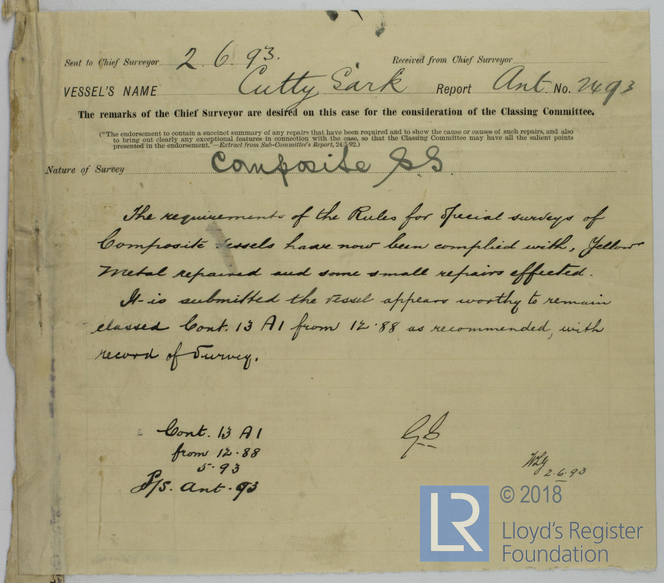 Sent to Chief Surveyor 2.6.93. Received from Chief Surveyor
VESSEL'S NAME Cutty Sark Report Ant. No. 2493
The remarks of the Chief Surveyor are desired on this case for the consideration of the Classing Committee.
("The endorsement to contain a succinct summary of any repairs that have been required and to show the cause or causes of such repairs, and also
to bring out clearly any exceptional features in connection with the case, so that the Classing Committee may have all the salient points
presented in the endorsement."—Extract from Sub-Committee's Report, 24/5/92.)
Nature of Survey Composite SS
The requirements of the Rules for Special surveys of
Composite Vessels have now been complied with, Yellow
Metal repaired and some small repairs effected.
It is submitted the vessel appears worthy to remain
classed Cont. 13 A1 from 12.88 as recommended, with
record of Survey.
Cont. 13 A1
from 12.88
5.93
S/S. Ant. 93
2.6.93
LR
© 2018
Lloyd's Register
Foundation